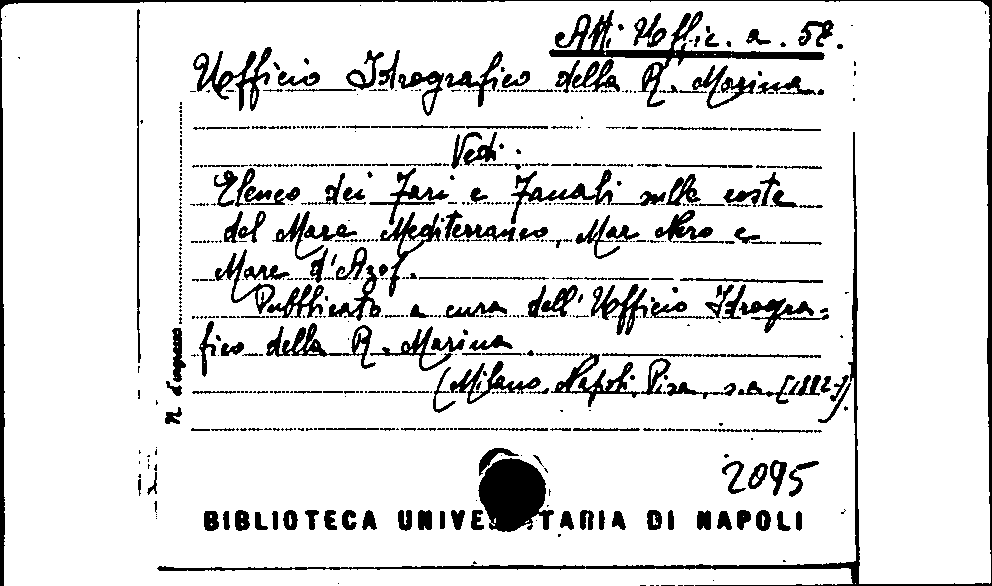 Atti Uffic. a. 58.
Ufficio Idrografico della R. Marina.
Vedi:
Elenco dei Fari e Fanali sulle coste
del Mare Mediterraneo, Mar Nero e
Mare d'Azof.
Pubblicato a cura dell'Ufficio Idrogra=
fico della R. Marina.
(Milano, Napoli, Pisa, s.a. [1882-])
N. d'ingresso
2095
BIBLIOTECA UNIVE TARIA DI NAPOLI